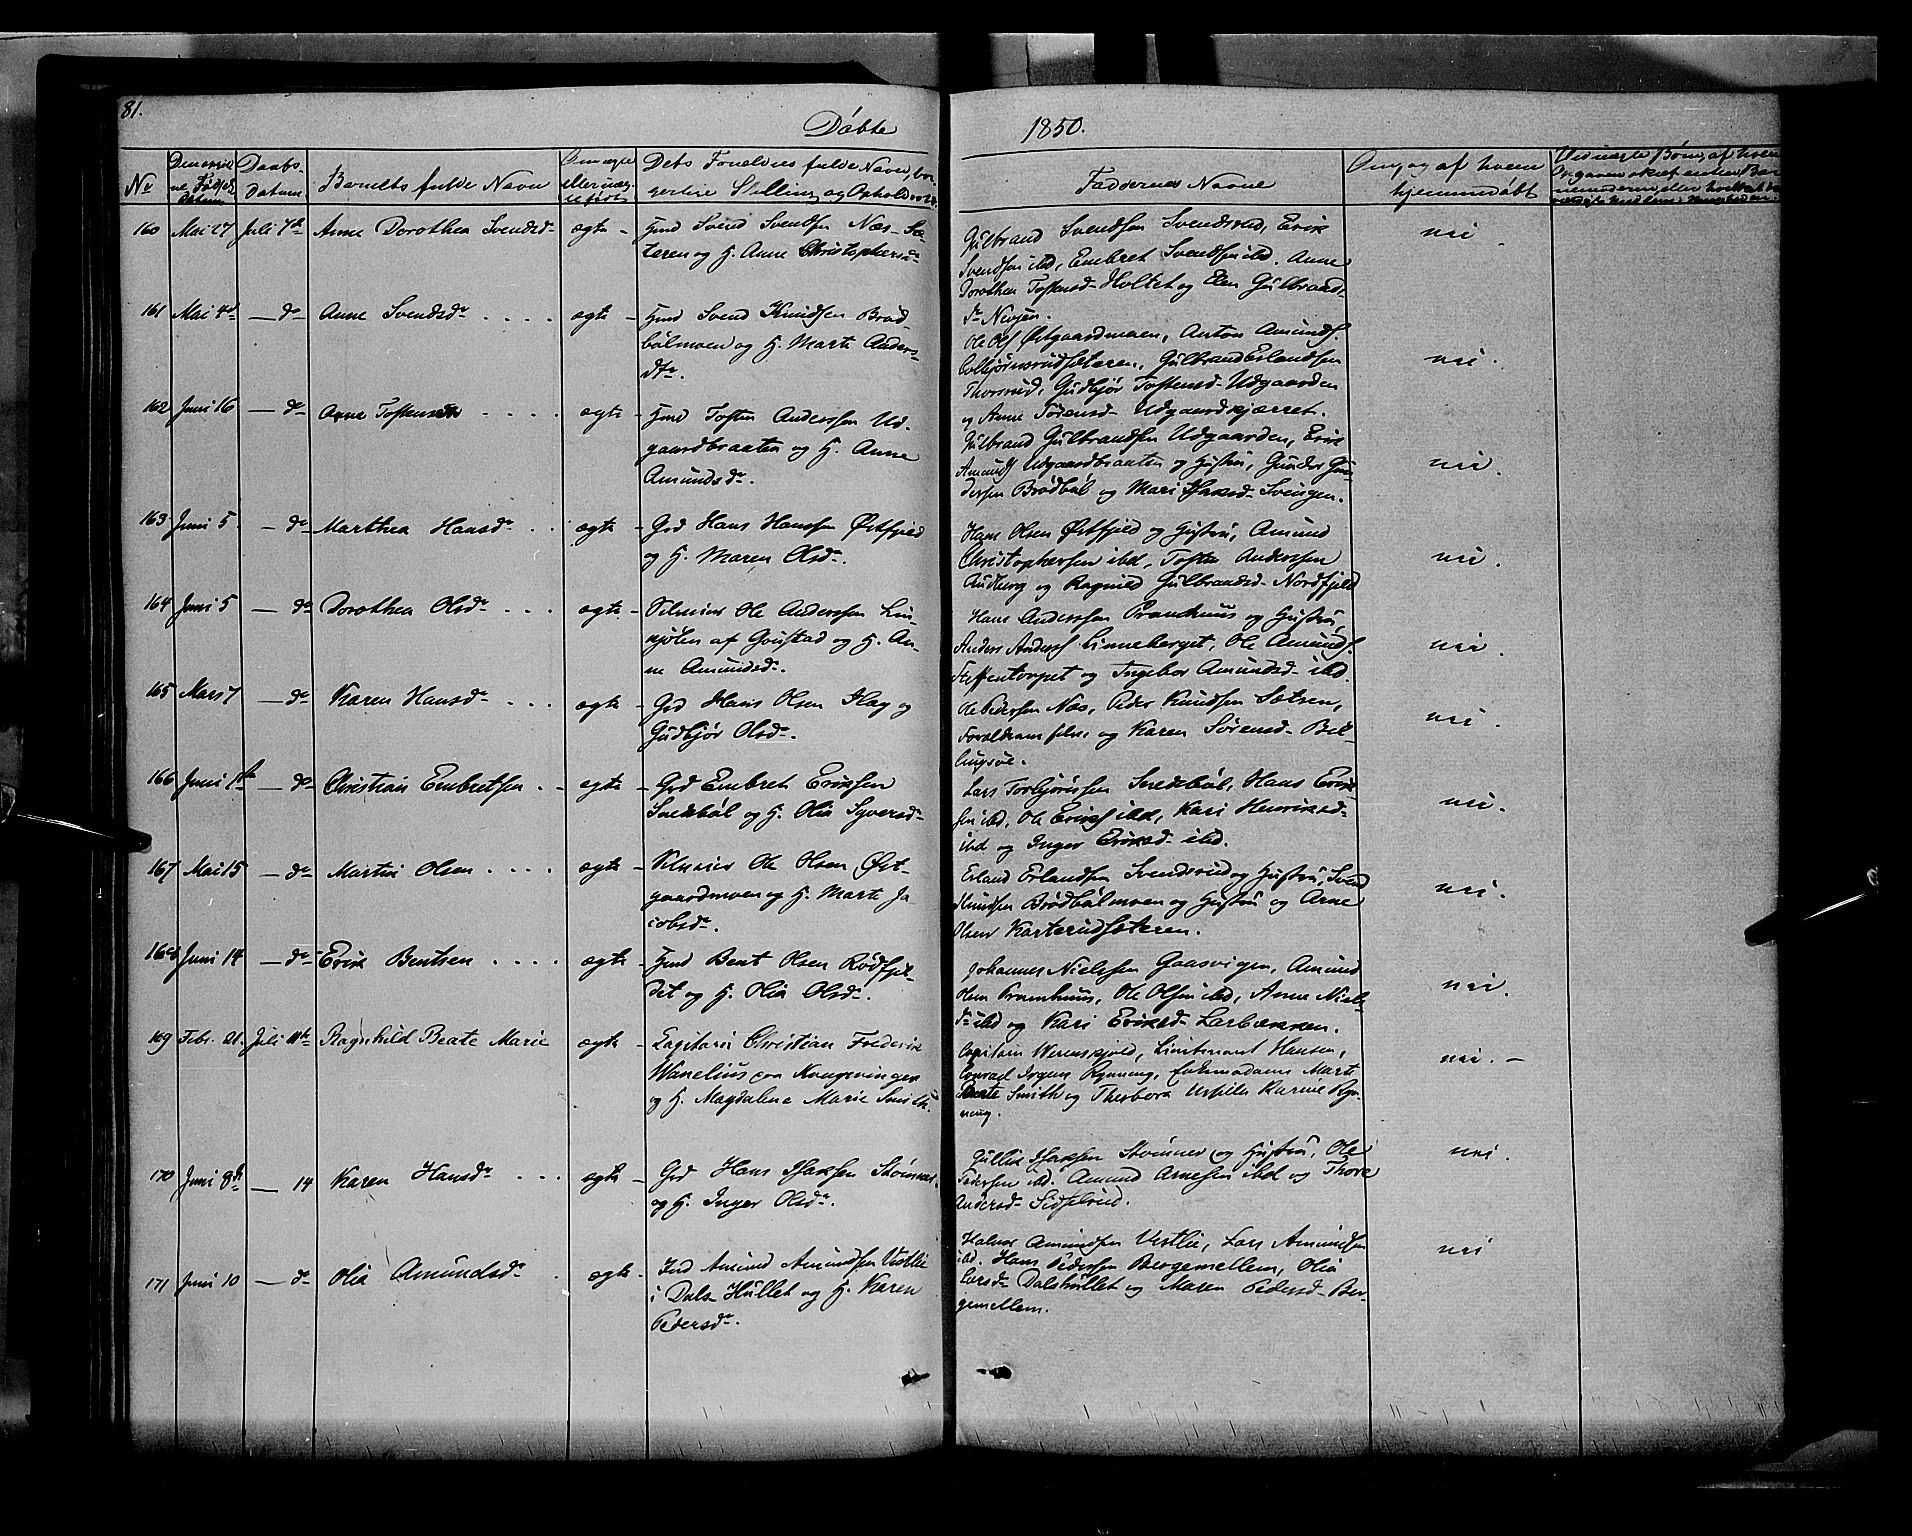 81.
Døbte
1850.
No
Daabs-
datum
Barnets fulde Navn
Om ægte
eller uæg-
te født
Dets Forældres fulde Navn, bor-
gerlige Stilling og Opholdssted.
Faddernes Navne
Om og af hvem
hjemmedøbt
160 Mai 27 Juli 7de Anne Dorothea Svendsdr ægte - Hmd Svend Svendsen Næs-Sæ-
teren og H. Anne Christophersdr
Gulbrand Svendsen Svendsrud, Erik
Svendsen ibd, Embret Svendsen ibd. Anne
Dorothea Tostensd. Holtet og Elen Gulbrands-
dr
nei
161 Mai 4d — do Anne Svendsdr . . . . ægte - Hmd Svend Knudsen Brød-
bølmoen og H. Marte Anders-
dtr.
Ole Ols Østgaardmoen, Anton Amunds.
Gulbrand Erlandsen
Thorsrud, Gudbjør Tostensd. Udgaarden
og Anne Udgaardskjærret.
nei.
162 Juni 16 — do Anne Tostensdr . . . . ægte - Hmd Tosten Anderssen Ud-
gaardbraaten og H. Anne
Amundsdr.
Gulbrand Gulbrandsen Udgaarden, Erik
Amunds Udgaardbraaten og Hustru, Gunder Gun-
dersen Brødbøl og Mari Isaksd. Svingen.
nei.
163 Juni 5 — do Marthea Hansdr . . ægte - Grd Hans Hanssen Østfjeld
og H. Maren Olsdr.
Hans Olsen Østfjeld og Hustru, Amund
Christophersen ibd, Tosten Anderssen
Audberg og Ragnild Gulbrandsd. Nordfjeld
nei.
164 Juni 5 — do Dorothea Olsdr . . . ægte - Selveier Ole Anderssen Lin-
af Grustad og H. An-
ne Amundsdr.
Hans Anderssen Pramhuus og Hustru,
Anders Anderss Linneberget, Ole Amunds.
Steffentorpet og Ingebor Amundsd. ibd.
nei.
165 Mars 7 — do Karen Hansdr . . . ægte - Grd Hans Olsen Slag og
Gudbjør Olsdr.
Ole Pedersen Næs, Peder Knudsen Sætren,
Forældrene selv og Karen Sørensd. Bil-
lingsøe.
nei.
166 Juni 1te — do Christian Embretsen . . ægte - Grd Embret Eriksen
Snekbøl og H. Olia Syversdr
Lars Torbjørnsen Snekbøl, Hans Erik-
sen ibd, Ole Eriks ibd, Kari Henriksd.
ibd og Inger Eriksd. ibd.
nei.
167 Mai 15 — do Martin Olsen . . . . ægte - Selveier Ole Olsen Øst-
gaardmoen og H. Marte Ja-
cobsdr.
Erland Erlandsen Svendsrud og Hustru, Svend
Knudsen Brødbølmoen og Hustru og Arne
Olsen Karterudsæteren.
nei.
168 Juni 14 — do Erik Bentsen . . . . ægte - Hmd Bent Olsen Rødfjel-
det og H. Olia Olsdr.
Johannes Nielssen Gaasvigen, Amund
Olsen Pramhuus, Ole Olsen ibd, Anne Niels-
dr ibd og Kari Eriksd. Larbækken.
nei.
169 Febr. 21. Juli 11te Ragnhild Beate Marie ægte - Christian Frederik
Wanelius paa Kongsvinger
og H. Magdalena Marie Smith.
Capitain Werenskjold, Lieutenant Hansen,
Conrad Jrgens Rynning, Marte
Beate Smith og Karine Ryn-
ning.
nei. -
170 Juni 8de — 14 Karen Hansdr . . . ægte - Grd Hans Isaksen Strømner
og H. Inger Olsdr.
Gullik Isaksen Strømner og Hustru, Ole
Pedersen ibd. Amund Arnesen ibd og Thore
Andersd. Sidselrud.
nei.
171 Juni 10 — do Olia Amundsdr . ægte - Ind Amund Amundsen Vestlie
i Dals-Hullet og H. Karen
Pedersdr.
Halvor Amundsen Vestlie, Lars Amundsen
ibd. Hans Pedersen Bergemellem, Olia
Larsd. Dalshullet og Maren Pedersd. Ber-
gemellem.
nei